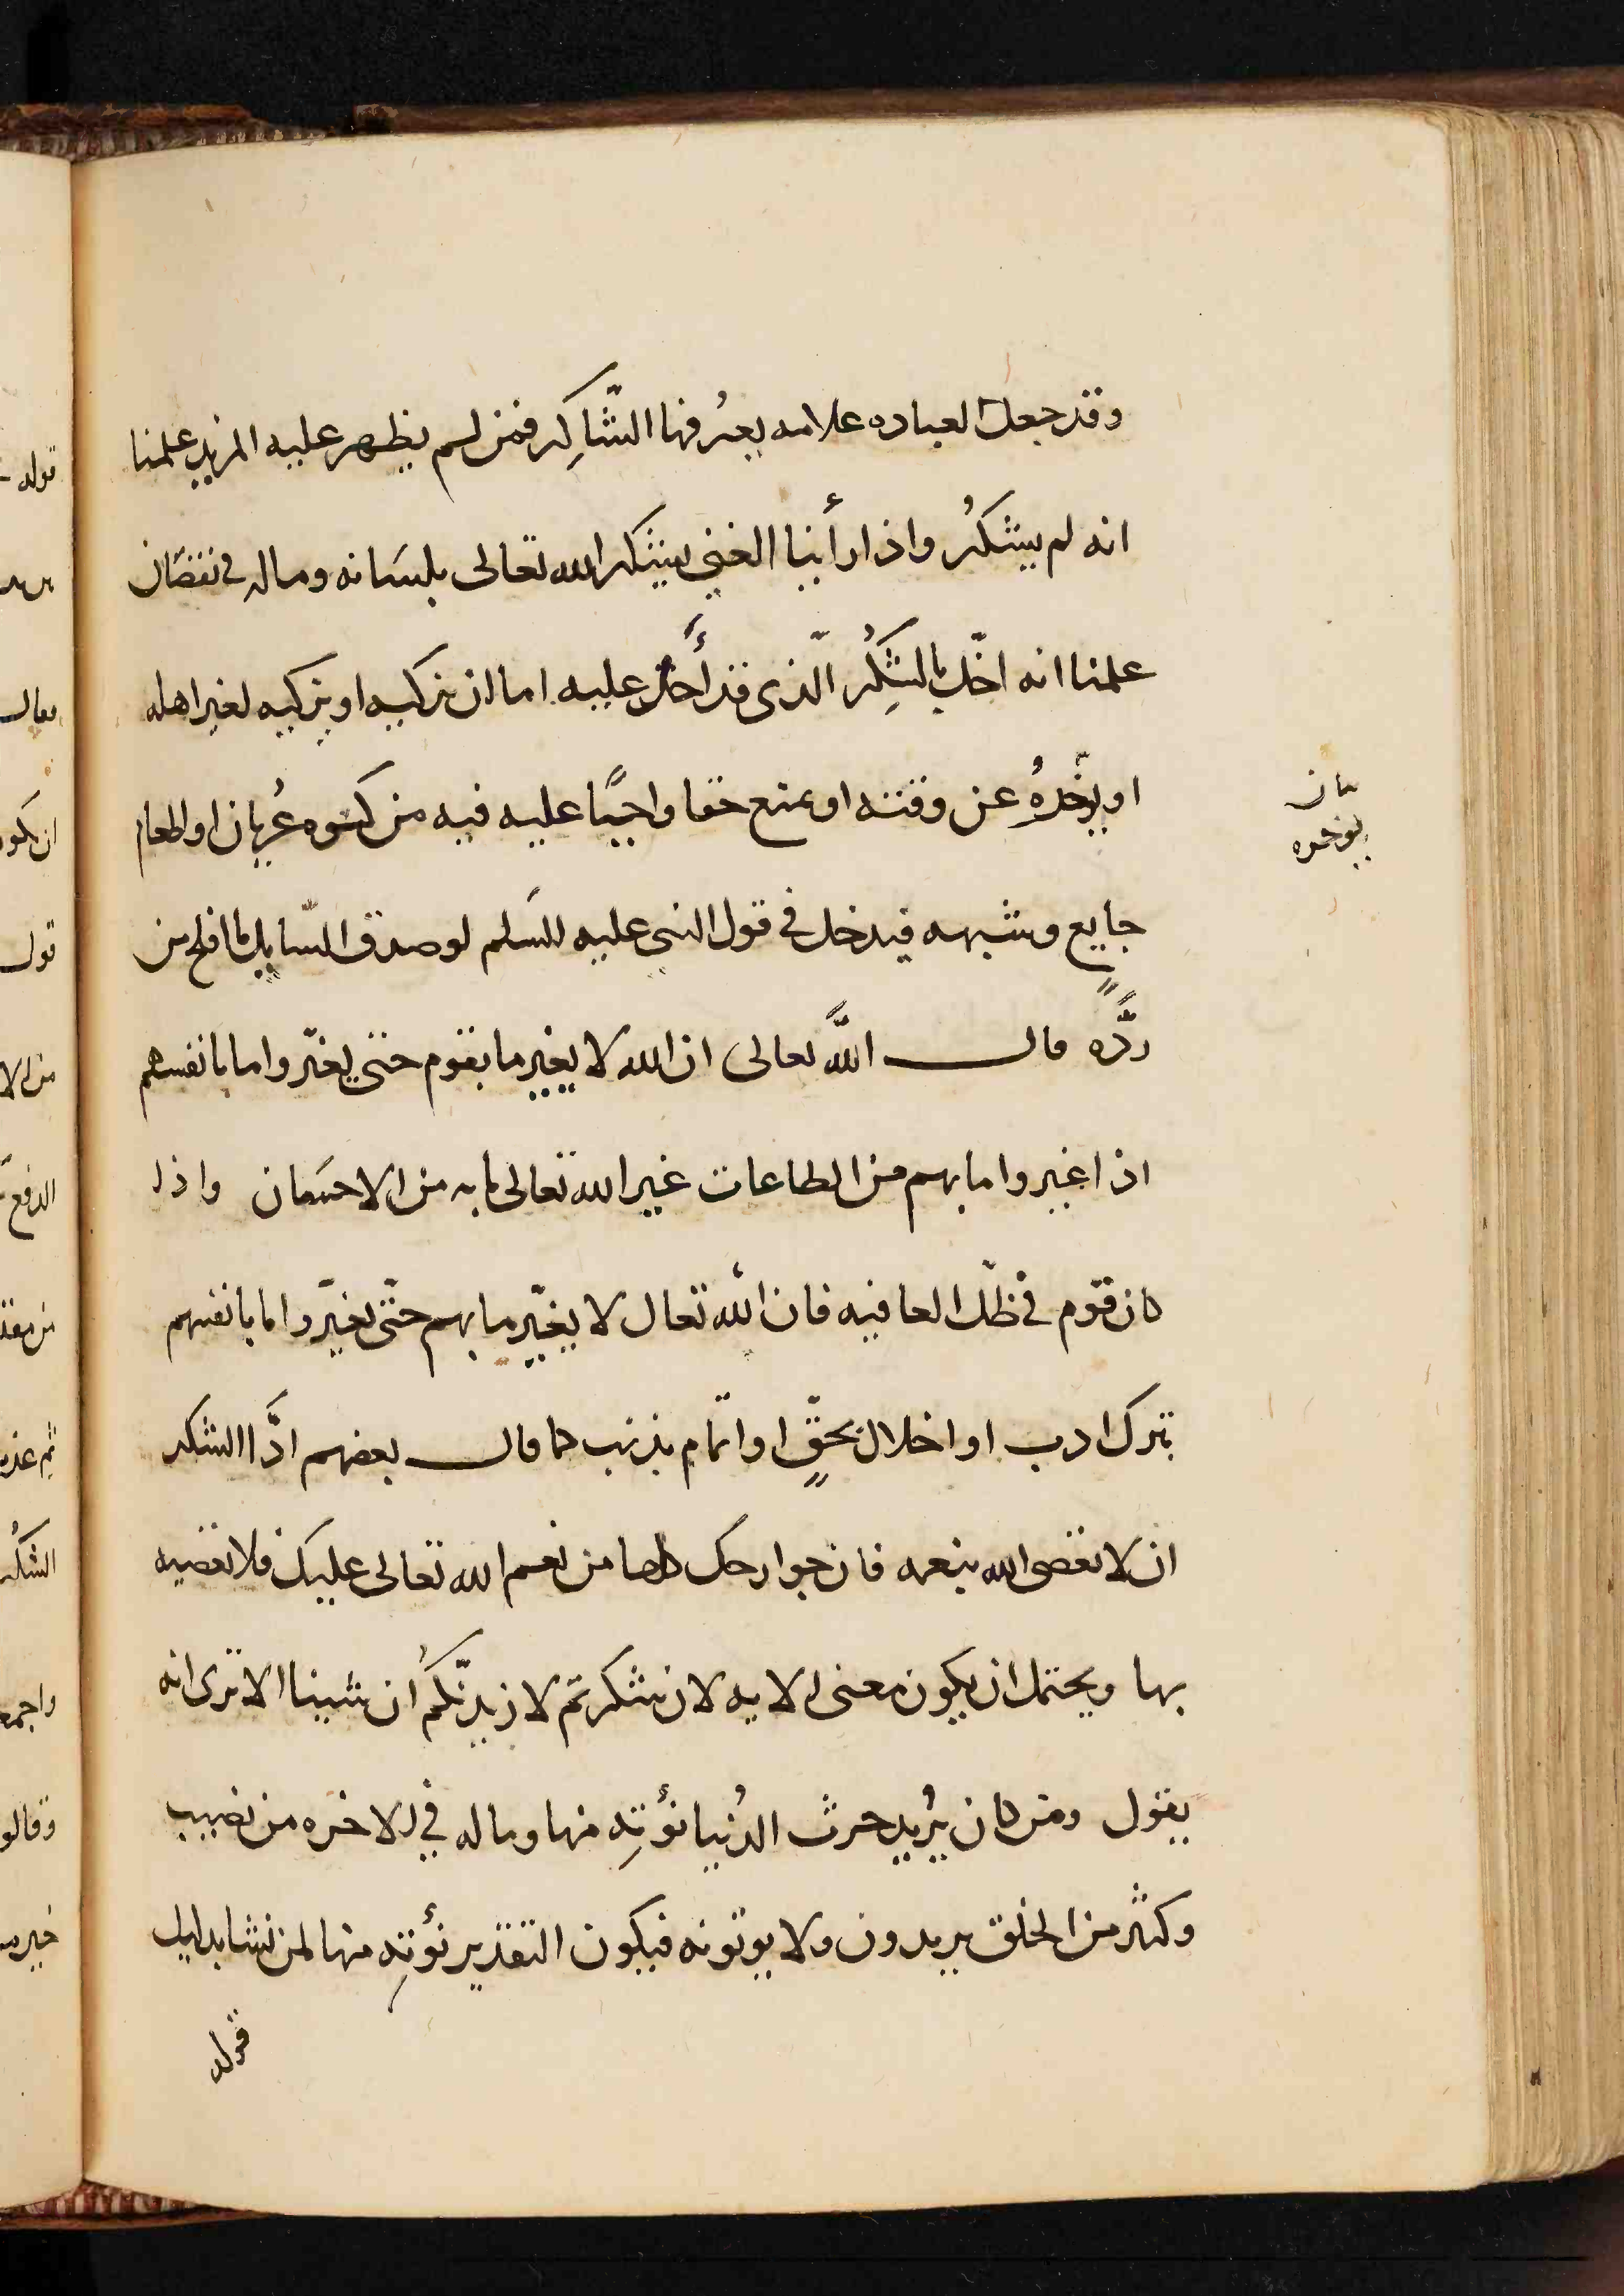 وقد جعل لعباده علامه يعرُفها الشّاكِر فمن لم يظهر عليه المزيد علمنا
انه لم يشكُر واذا رأينا الغني يشكر الله تعالى بلسَانه وماله في نقصَان
علمنا انه اخّل بالشكِر الّذى قد أخذ عليه اما ان يزكيه او يزكيه لغير اهله
او يؤخّرهُ عن وقته او يمنع حقا واجبًا عليه فيه من كسوه عُريان او اطعام
جايع وشبهه فيدخل في قول النبى عليه السَلم لو صدق السّايل ما افلح من
ردَّه قال اللَّه تعالى ان الله لا يغير ما بقوم حتى يغيّروا ما بانفسهم
اذا غيروا ما بهم من الطاعات غير الله تعالى ما به من الاحسَان واذا
كان قوّم في ظلّ العافيه فان الله تعال لا يغيّر ما بهم حتّى يغيّروا ما بانفسهم
بترك ادب او اخلال بحقّ او اتمام بذنب كما قال بعضهم ادَّا الشكر
ان لا تعصى الله بنعمه فان جوارحك كلها من نعم الله تعالى عليك فلا تعصيه
بها ويحتمل ان يكون معنى الايه لان شكرتم لازيدنّكُم ان شينا الا ترى انه
يقول ومن كان يُريد حرث الدُنيا نؤتِه منها وماله في الاخره من نصيب
وكثير من الخلق يريدون ولا يوتونه فيكون التقدير نؤتِه منها لمن نشا بدليل
قوله
يوخره